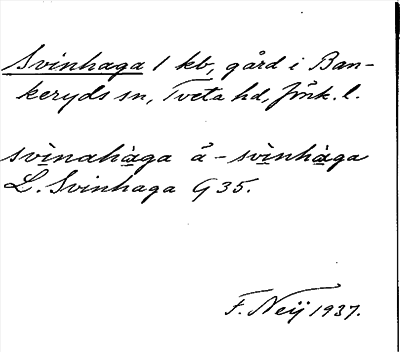 Svinhaga 1 kb, gård i Ban-
keryds sn, Tveta hd, Jönk. l.
svìnahàga å - svìnhàga
L. Svinhaga G 35.
F. Neij 1937.